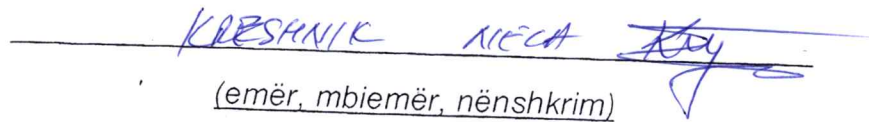 KRESHNIK NECA
(emër, mbiemër, nënshkrim)